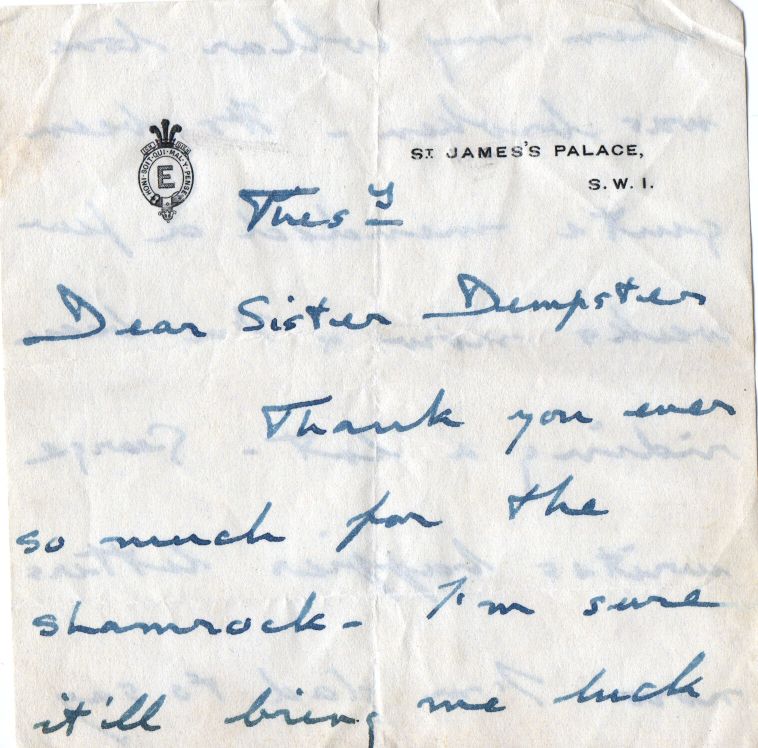 HONI·SOIT·QUI·MAL·Y·PENSE
E
ST JAMES'S PALACE,
S.W.1.
Thesy
Dear Sister Dempster
Thank you ever
so much for the
shamrock - I'm sure
it'll bring me luck